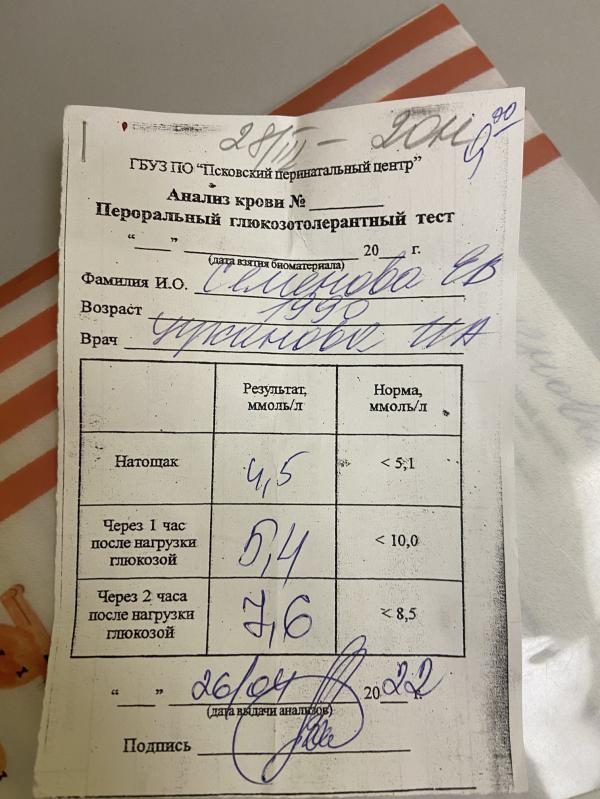 28/III - 20н
9 00
ГБУЗ ПО “Псковский перинатальный центр”
Анализ крови № ________
Пероральный глюкозотолерантный тест
“____” ____________ 20__ г.
(дата взятия биоматериала)
Фамилия И.О. Семенова ЕВ
Возраст 1990
Врач
Результат, ммоль/л
Норма, ммоль/л
Натощак 4,5 < 5,1
Через 1 час
после нагрузки 5,4 < 10,0
глюкозой
Через 2 часа
после нагрузки 7,6 < 8,5
глюкозой
“____” 26/04 2022 г.
(дата выдачи анализов)
Подпись